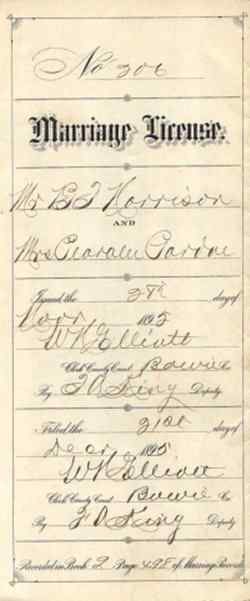 No 306
Marriage License.
Mr B F Morrison
AND
Mrs
Issued the day of
1895
W R Elliott
Clerk County Court Bowie Co
By King Deputy
Filed the 21st day of
Decr 1895
W R Elliott
Clerk County Court Bowie Co
By King Deputy
Recorded in Book Page 498 of Marriage Records